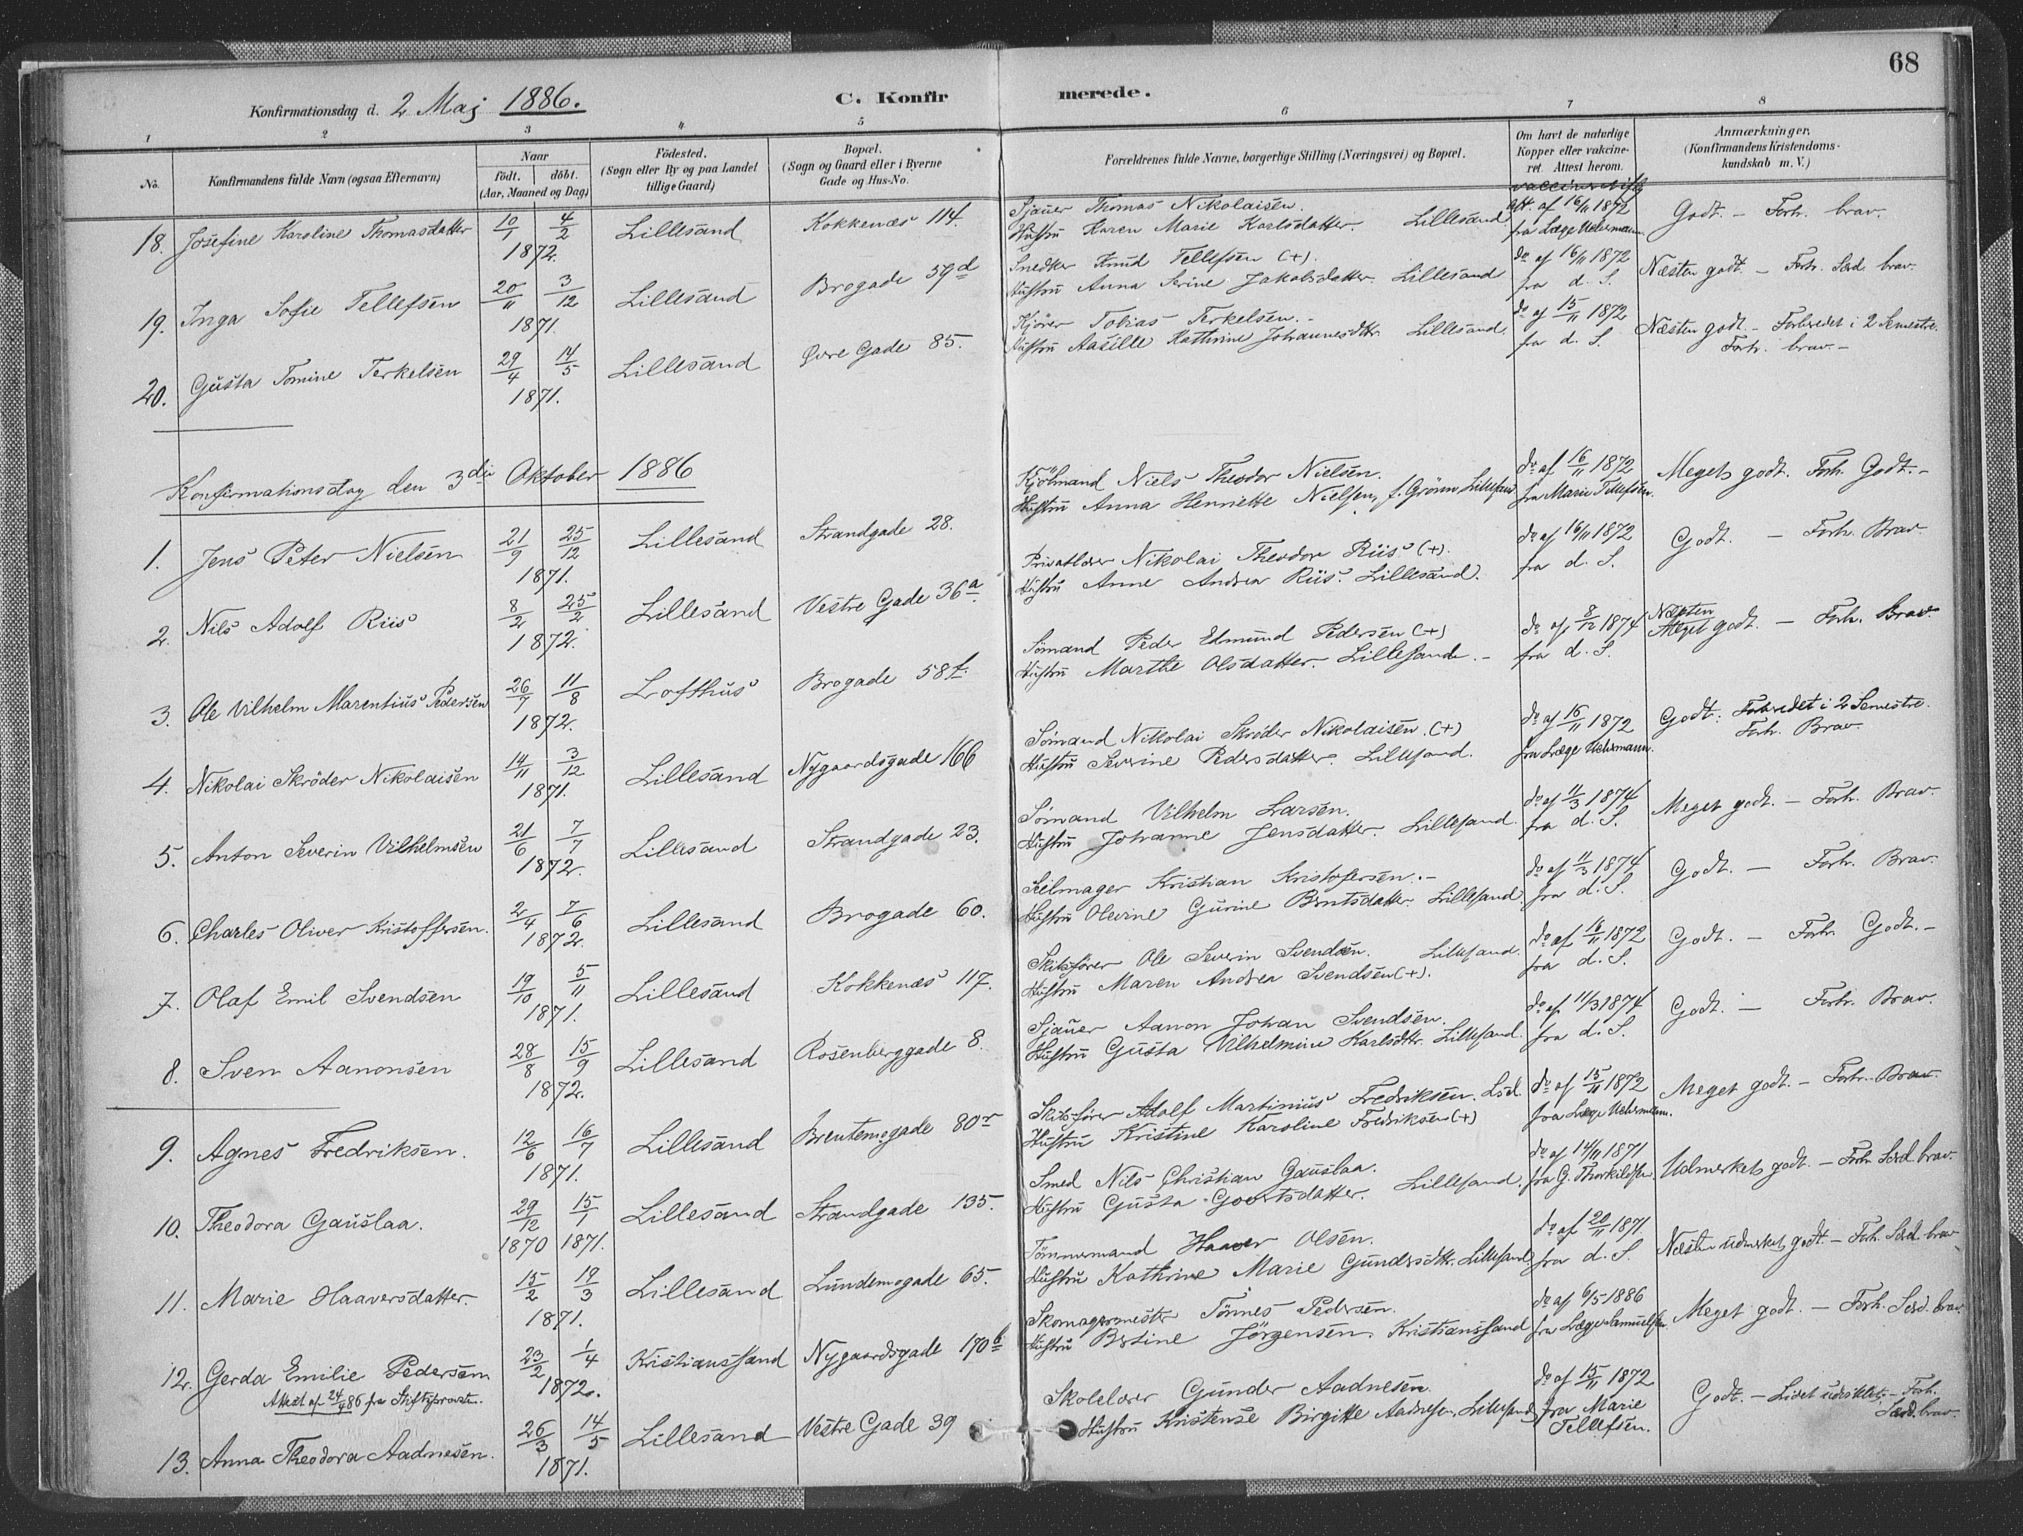 68
Konfirmationsdag d. 2 Maj 1886.
C. Konfirmerede.
1 2 3 4 5 6 7 8
No.
Konfirmandens fulde Navn (ogsaa Efternavn)
Naar
födt. döbt.
(Aar, Maaned og Dag)
Födested.
(Sogn eller By og paa Landet
tillige Gaard)
Bopæl.
(Sogn og Gaard eller i Byerne
Gade og Hus-No.
Forældrenes fulde Navne, borgerlige Stilling (Næringsvei) og Bopæl.
Om havt de naturlige
Kopper eller vakcine-
ret Attest herom.
Anmærkninger.
(Konfirmandens Kristendoms-
kundskab m. V.)
18. Josefine Karoline Thomasdatter 10/1 4/2 1872. Lillesand Kokkenæs 114.
Sjauer Thomas Nikolaisen.
Hustru Karen Marie Karlsdatter. Lillesand
att. af 16/11 1872
fra Læge Uchermann.
Godt. – Forh. brav.
19. Inga Sofie Tellefsen 20/11 3/12 1871. Lillesand Brogade 59d
Snedker Knud Tellefsen (+).
Hustru Anna Serine Jakobsdatter. Lillesand
do af 16/11 1872
fra d. S.
Næsten godt. – Forh. Særd. brav.
20. Gusta Tomine Terkelsen 29/4 14/5 1871. Lillesand Øvre Gade 85.
Kjörer Tobias Terkelsen. –
Hustru Aasille Kathrine Johannesdtr. Lillesand.
do af 15/11 1872
fra d. S.
Næsten godt. – Forberedet i 2 Semestre.
Forh. brav. –
Konfirmationsdag den 3die Oktober 1886
1. Jens Peter Nielsen 21/9 25/12 1871. Lillesand Strandgade 28.
Kjölmand Niels Theodor Nielsen.
Hustru Anna Henriette Nielsen, f. Grönn Lillesand
do af 16/11 1872
fra Marie Tellefsen.
Meget godt. Forh. Godt. –
2. Nils Adolf Riis 8/2 25/2 1872. Lillesand Vestre Gade 36a.
Privatlærer Nikolai Theodor Riis (+).
Hustru Anne Andrea Riis. Lillesand.
do af 16/11 1872
fra d. S.
Godt. – Forh. Brav.
3. Ole Vilhelm Marentius Pedersen 26/7 11/8 1872. Lofthus Brogade 58f.
Sømand Peder Edmund Pedersen (+)
Hustru Marthe Olsdatter. – Lillesand. –
do af 8/12 1874
fra d. S.
Næsten
Meget godt. – Forh. Brav.
4. Nikolai Skröder Nikolaisen 14/11 3/12 1871. Lillesand Nygaardsgade 166
Sömand Nikolai Skröder Nikolaisen. (+)
Hustru Severine Pedersdatter. Lillesand.
do af 16/11 1872
fra Læge Uchermann.
Godt. Forberedet i 2 Semestre.
Forh. Brav.
5. Anton Severin Vilhelmsen 21/6 7/7 1872. Lillesand Strandgade 23.
Sømand Vilhelm Larsen.
Hustru Johanne Jensdatter. Lillesand.
do af 11/3 1874
fra d. S.
Meget godt. – Forh. Brav.
6. Charles Oliver Kristoffersen. 2/4 7/6 1872. Lillesand Brogade 60.
Seilmager Kristian Kristofersen. –
Hustru Olevine Gurine Berntsdatter. Lillesand
do af 11/3 1874
fra d. S.
Godt. – Forh. Brav.
7. Olaf Emil Svendsen 19/10 5/11 1871. Lillesand Kokkenæs 117.
Skibsfører Ole Severin Svendsen. Lillesand.
Hustru Maren Andrea Svendsen (+).
do af 16/11 1872
fra d. S.
Godt. – Forh. Godt. –
8. Sven Aanonsen 28/8 15/9 1872. Lillesand Rosenberggade 8.
Sjauer Aanon Johan Svendsen.
Hustru Gusta Vilhelmine Karlsdtr. Lillesand.
do af 11/3 1874
fra d. S.
Godt. – Forh. Brav.
9. Agnes Fredriksen. 12/6 16/7 1871. Lillesand Brentemogade 80
Skibsfører Adolf Martinius Fredriksen. Lsd.
Hustru Kristine Karoline Fredriksen (+)
do af 15/11 1872
fra Læge Uchermann.
Meget godt. – Forh. Brav
10. Theodora Gauslaa. 29/12 1870 15/1 1871. Lillesand Strandgade 135.
Smed Nils Christian Gauslaa.
Hustru Gusta Goertsdatter. Lillesand.
do af 14/11 1871
fra G. Thorkildsen.
Udmerket godt. – Forh. Særd. brav.
11. Marie Haaversdatter. 15/2 19/3 1871. Lillesand Lundemogade 65.
Tømmermand Haaver Olsen.
Hustru Kathrine Marie Gundersdtr. Lillesand
do af 20/11 1871
fra d. S.
Næsten udmerket godt. – Forh. Særd. brav
12. Gerda Emilie Pedersen 23/2 1/4 1872. Kristianssand Nygaardsgade 170b
Attest af 24/4 86 fra Stiftsprovsten.
Skomagermester Tönnes Pedersen.
Hustru Bertine Jörgensen. Kristianssand
do af 6/5 1886
fra Læge Samuelsen.
Meget godt. – Forh. Særd. brav.
13. Anna Theodora Aadnesen. 26/3 14/5 1871. Lillesand Vestre Gade 39
Skolelærer Gunder Aadnesen.
Hustru Kristense Birgitte Aadnesen, Lillesand
do af 15/11 1872
fra Marie
Tellefsen.
Godt. – Lidet udviklet. – Forh.
Særd. brav.